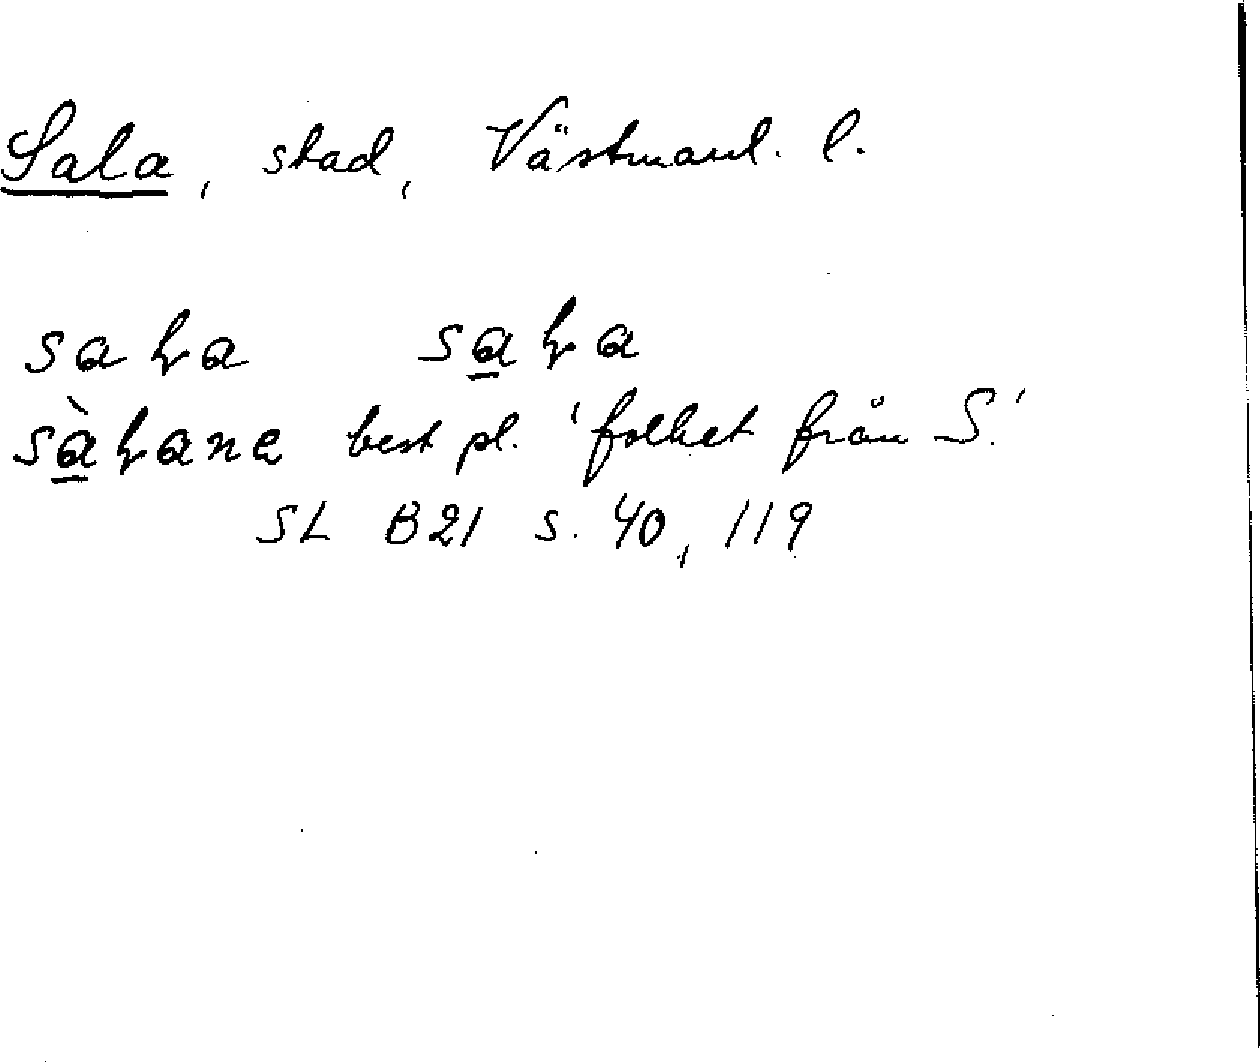 Sala, stad, Västmanl. l.
saɽa saɽa
sàɽane best pl. 'folket från S.'
SL B21 s. 40, 119